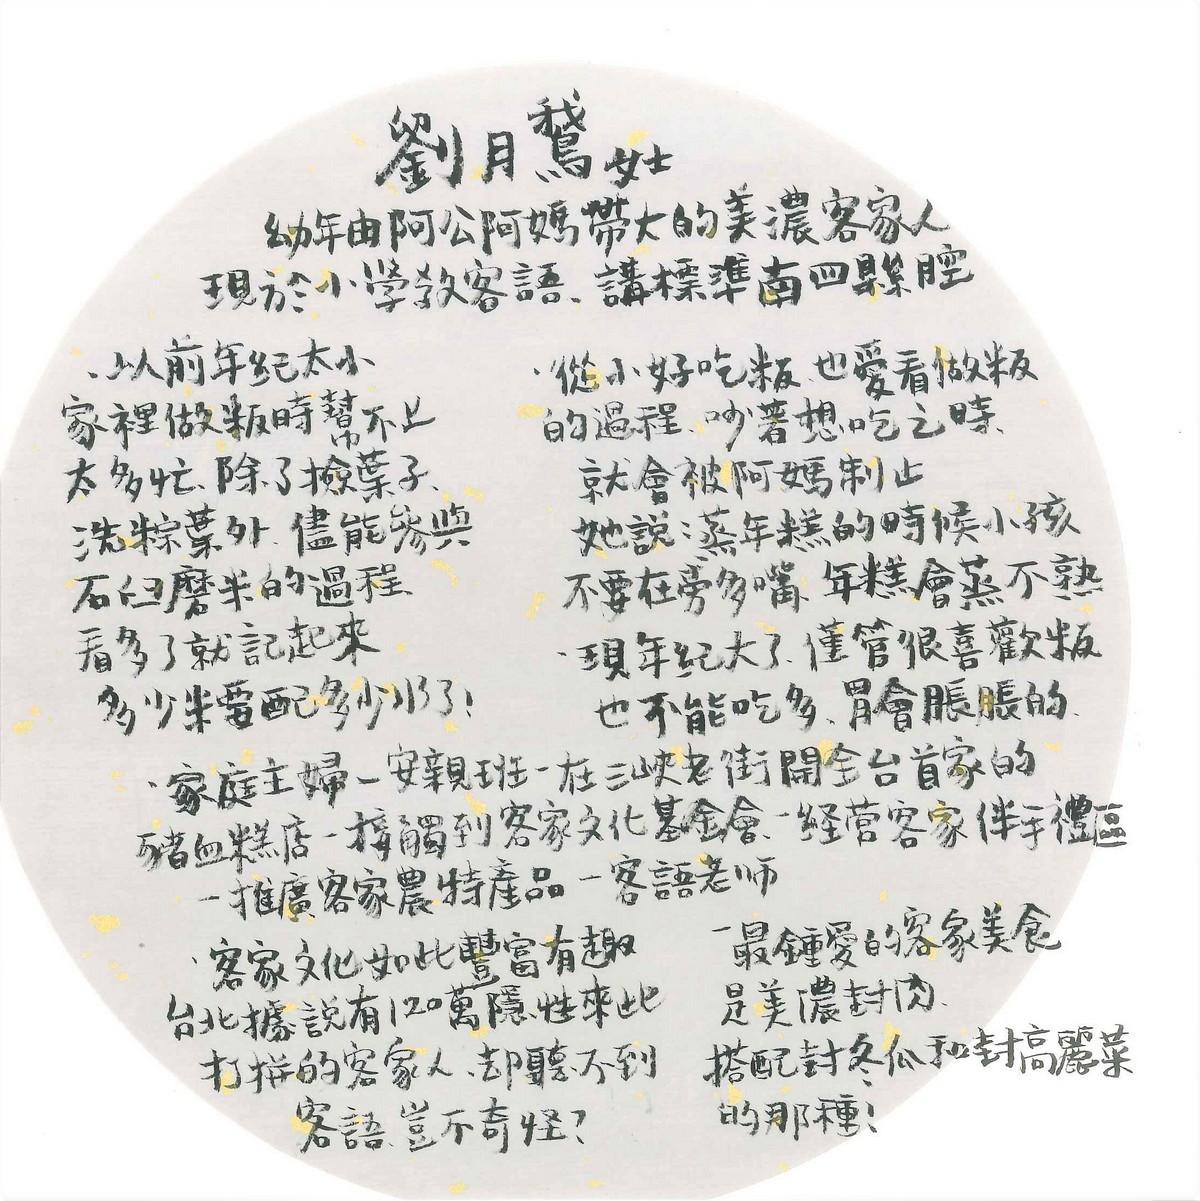 劉月鵞女士
幼年由阿公阿媽帶大的美濃客家人
現於小學教客語、講標準南四縣腔
·以前年紀太小
家裡做粄時幫不上
太多忙、除了撿葉子、
洗粽葉外、儘能參與
石臼磨米的過程
看多了就記起來
多少米要配多少水了!
·從小好吃粄、也愛看做粄
的過程、吵著想吃之時、
就會被阿媽制止
她說:蒸年糕的時候小孩
不要在旁多嘴、年糕會蒸不熟
·現年紀大了、僅管很喜歡粄
也不能吃多、胃會脹脹的、
·家庭主婦-安親班-在三峽老街開全台首家的
豬血糕店-接觸到客家文化基金會-經營客家伴手禮區
-推廣客家農特產品-客語老師
·客家文化如此豐富有趣
台北據說有120萬隱性來此
打拼的客家人、却聽不到
客語、豈不奇怪?
-最鍾愛的客家美食
是美濃封肉、
搭配封冬瓜和封高麗菜
的那種!